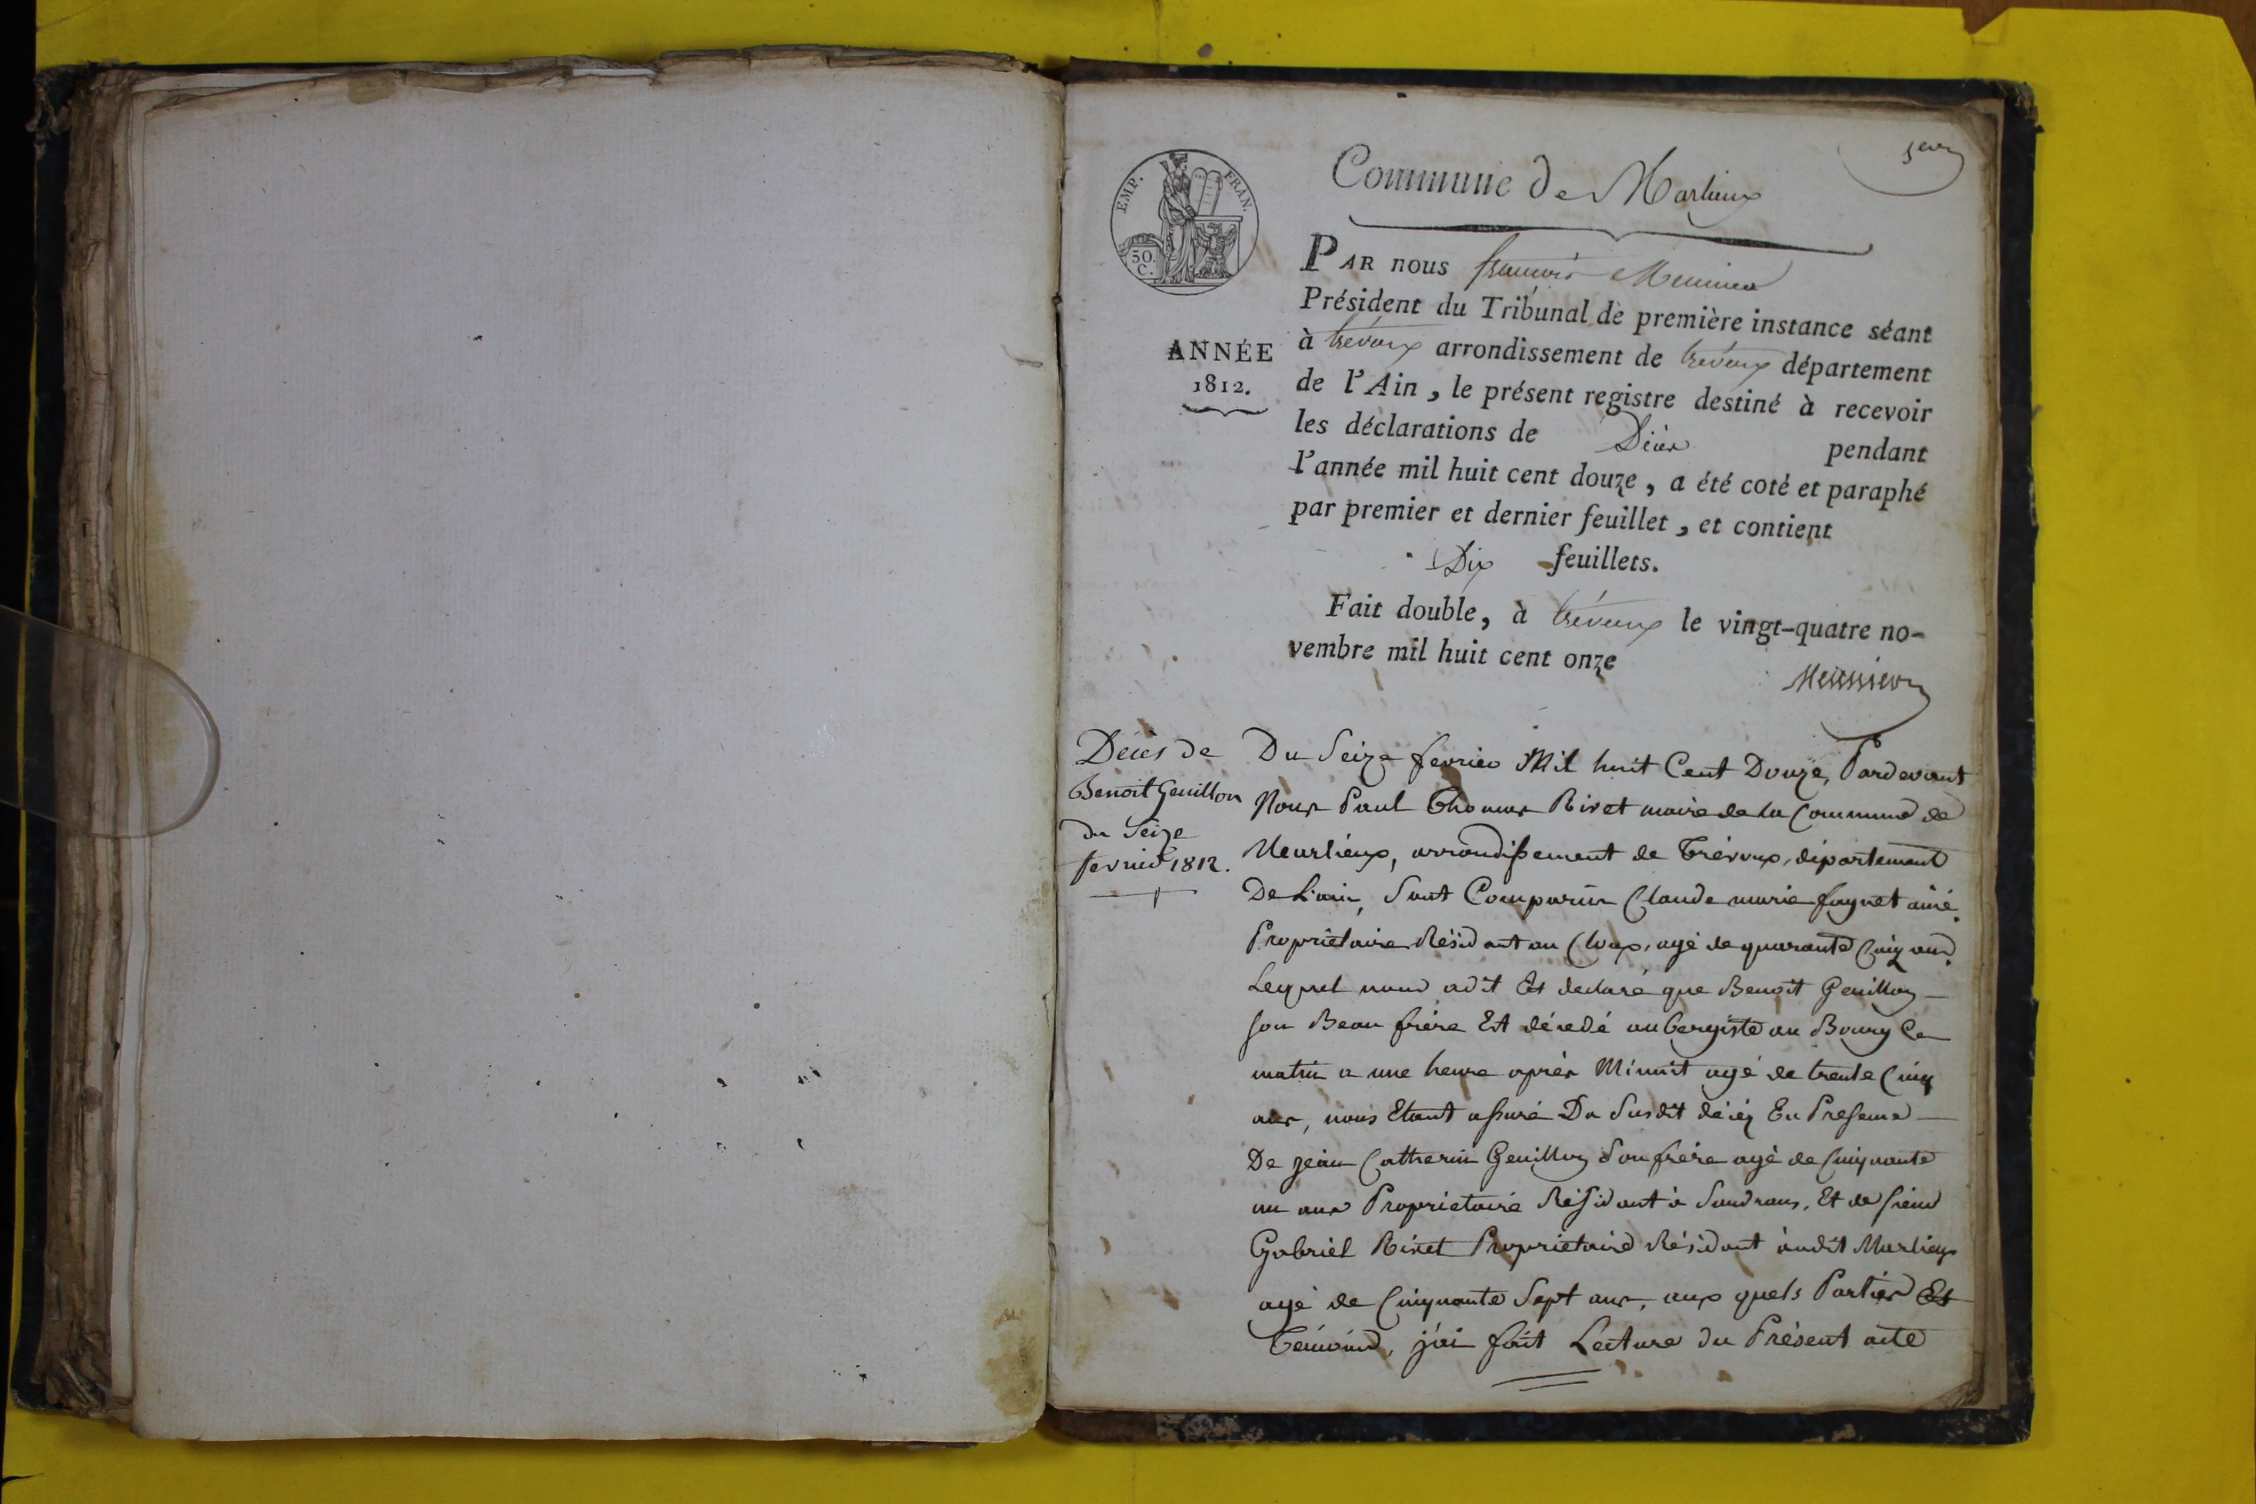 1er
Commune de Marlieux
EMP. FRAN.
50.
C.
ANNÉE
1812.
PAR nous françois Meunier
Président du Tribunal de première instance séant
à trévoux arrondissement de trévoux département
de l'Ain, le présent registre destiné à recevoir
les déclarations de Décès pendant
l'année mil huit cent douze, a été coté et paraphé
par premier et dernier feuillet, et contient
Dix feuillets.
Fait double, à trévoux le vingt-quatre no-
vembre mil huit cent onze
Décès de
Benoit Genillon
du Seize
fevrier 1812.
Du Seize fevrier Mil huit Cent Douze, Pardevant
Nous Paul Thomas Rivet maire de la Commune de
Marlieux, arrondissement de Trévoux, département
De L'ain, Sont Comparus Claude marie fayet ainé
Proprietaire Résidant au Cloux, agé de quarante Cinq ans
Lequel nous a dit Et declaré que Benoit Genillon
son Beau frère Et décedé aubergiste au Bourg Ce
matin a une heure après Minuit agé de trente Cinq
ans, nous Etant assuré Du Susdit décéz En Presence
De jean Catherin Genillon Son frère agé de Cinquante
un ans Proprietaire Résidant à Sandrans, Et de sieur
Gabriel Rivet Proprietaire Résidant audit Marlieux
agé de Cinquante Sept ans, aux quels Parties Et
Témoins, j'ai fait Lecture du Présent acte